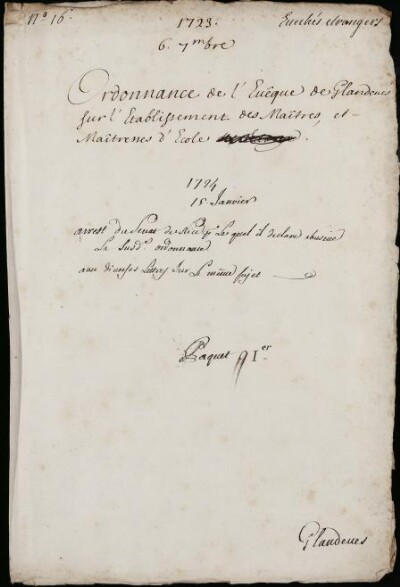 N.° 16.
1723.
Euechés etrangers
6. 7.mbre
Ordonnance de l'Euêque de Glandeues
sur l'Etablissement des Maîtres, et
Maîtresses d'Ecole
1724
15 Janvier
arrest du Senat de Nice p.r lequel il declare abusive
La susd.e ordonnance
avec diverses Lettres sur le même sujet
Paquet 1.er
Glandeues